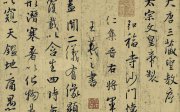 大唐三藏聖教
太宗文皇帝製
弘福寺沙門
仁集晉右將軍
王羲之書
蓋聞二儀有像
載以含生四時
形潛寒暑以化物
窺天鑑地庸愚